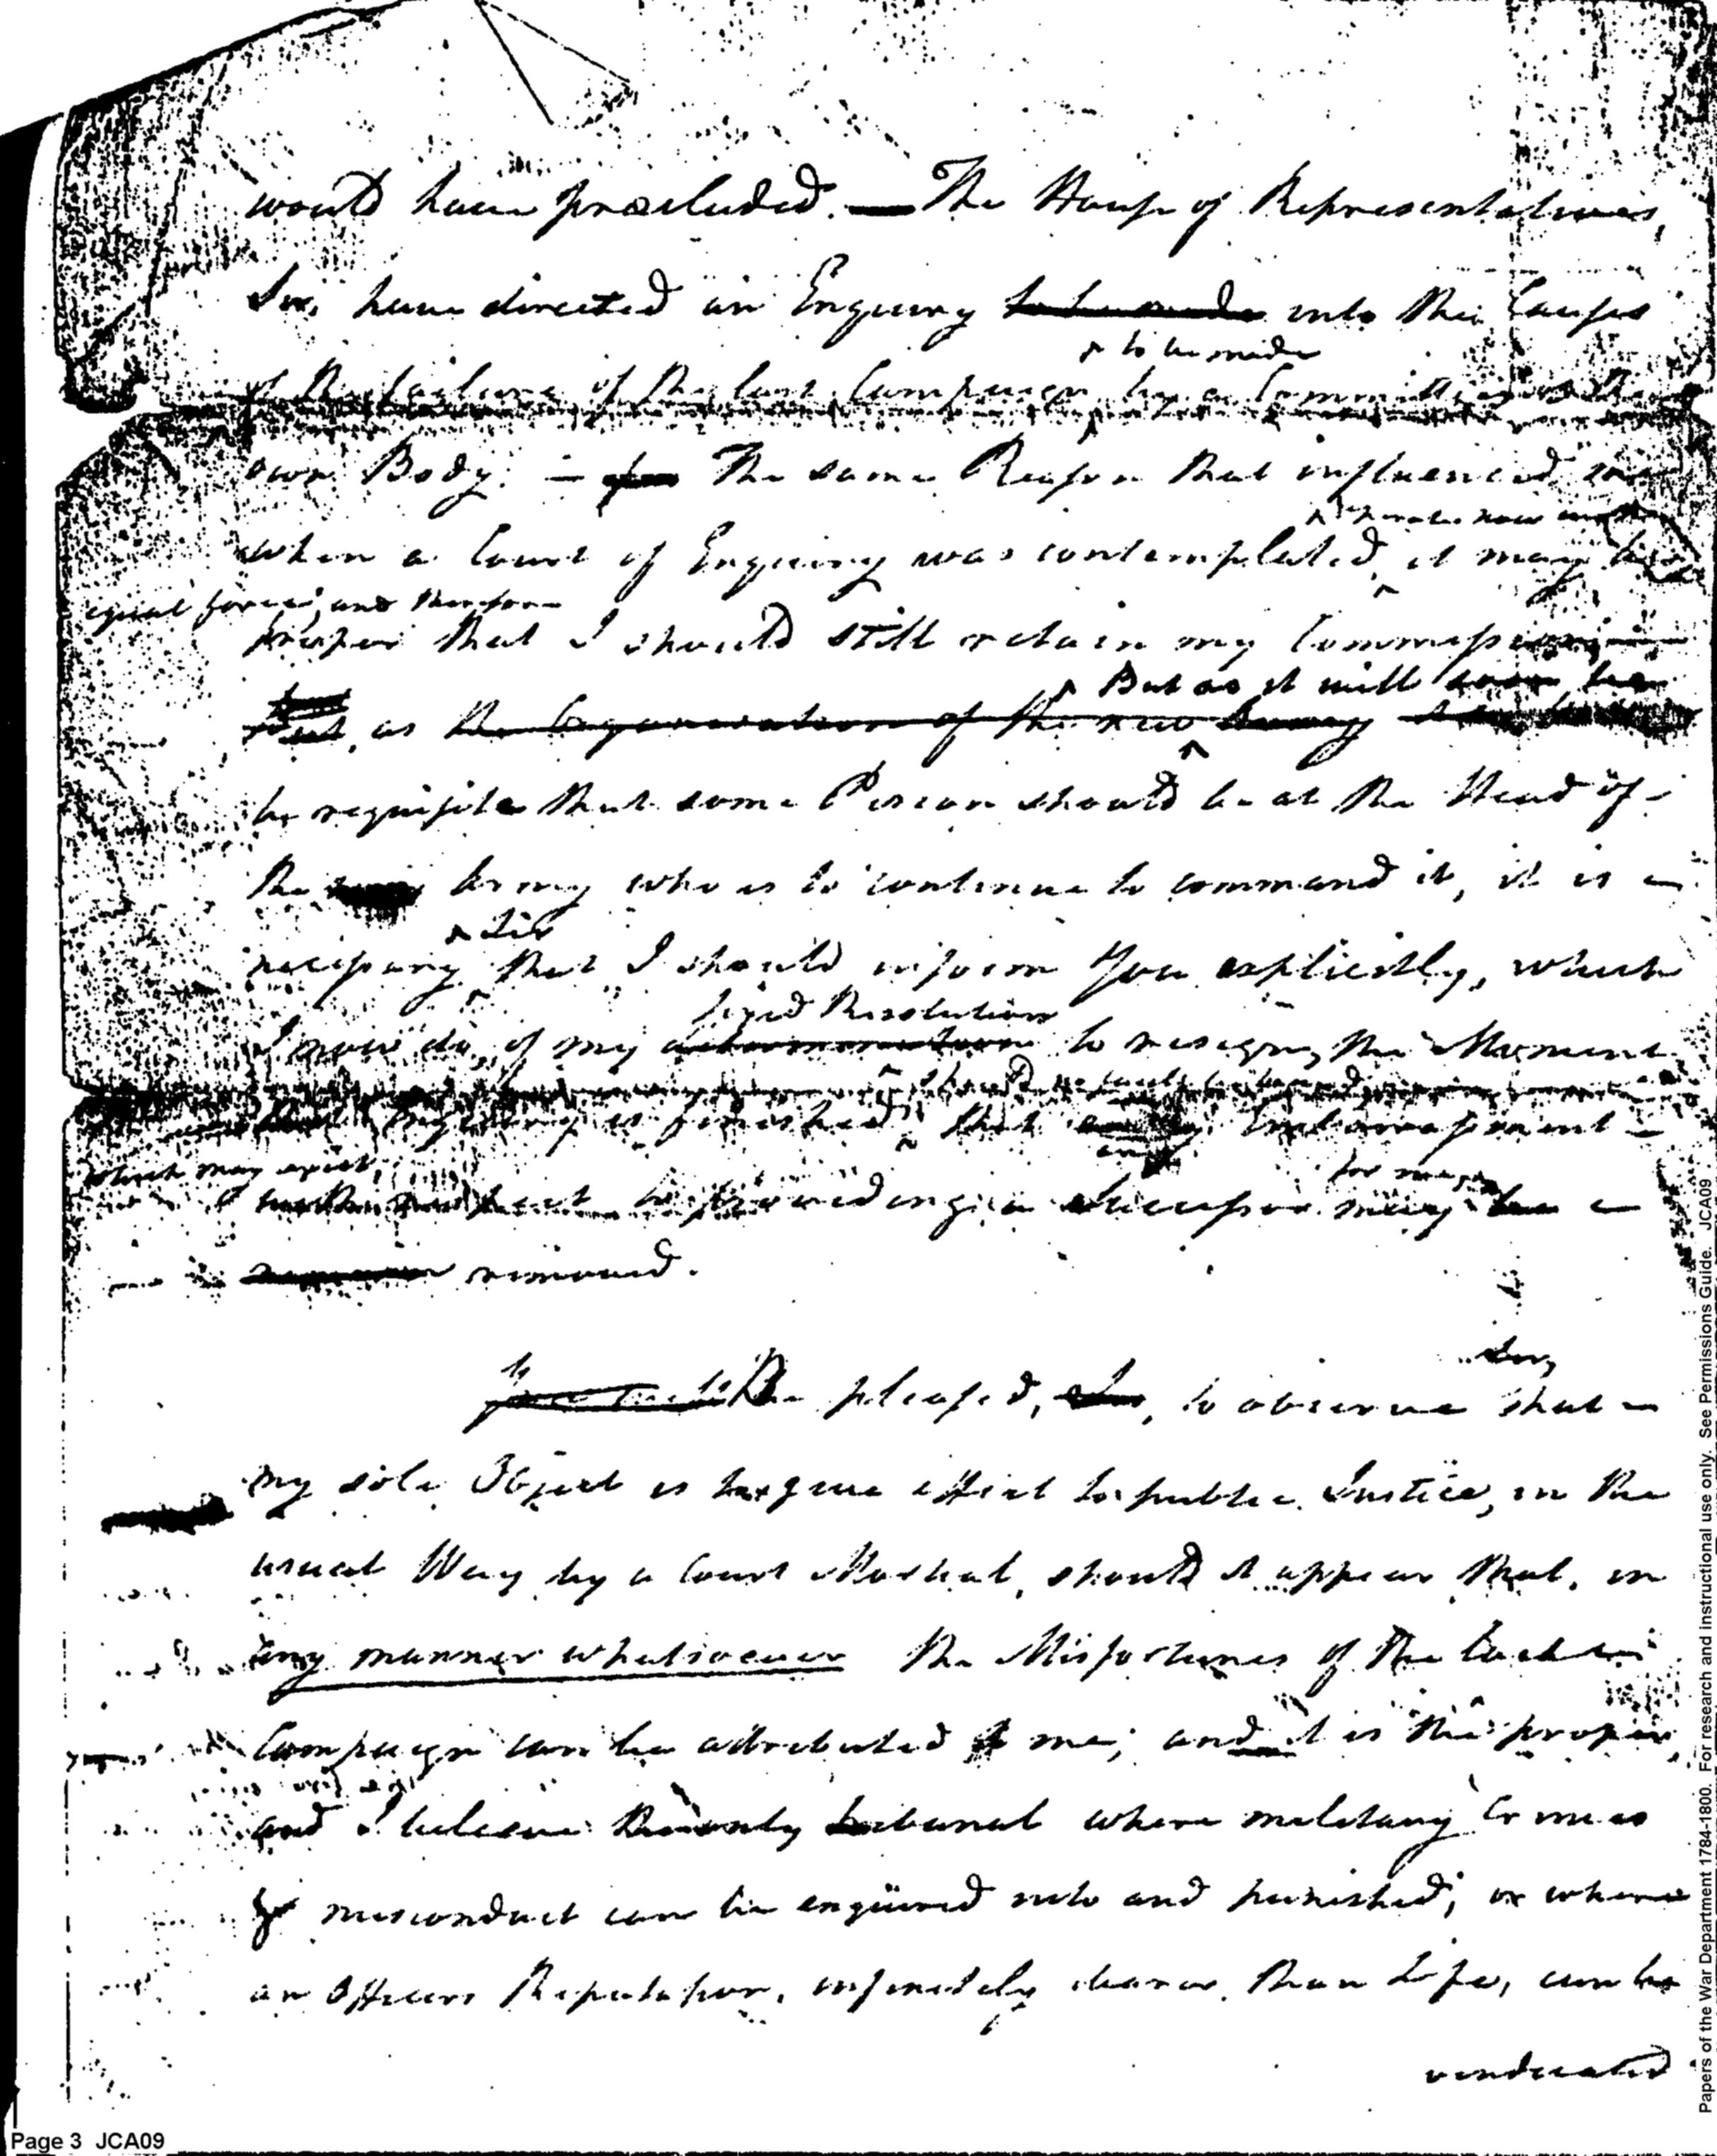 would have precluded. — The House of Representatives,
Sir, have directed an Enquiry to be made into the Causes
to be made
of the failure of the last Campaign by a Committee of their
own Body. — The same Reason that influenced me
operates now
when a Court of Enquiry was contemplated, it may be
equal force, and therefore
proper that I should still retain my Commission —
But as it will soon be
But, as the Organization of the new Army
be requisite that some Person should be at the Head of
the Army who is to continue to command it, it is
Sir
necessary that I should inform You explicitly, which
fixed Resolution
I now do, of my determination to resign, the Moment
should
Enquiry is finished, that Embarrassment
any
which may exist,
for me
with respect to providing a Successor may be
removed.
Sir,
Be pleased, Sir, to observe that
my sole Object is to give effect to public Justice, in the
usual Way by a Court Martial, should it appear that, in
any manner whatsoever the Misfortunes of the last
Campaign can be attributed to me; and it is the proper,
and I believe the only tribunal where military Crimes
or misconduct can be enquired into and punished; or where
an Officers Reputation, infinitely dearer than Life, can be
vindicated
Page 3 JCA09
Papers of the War Department 1784-1800. For research and instructional use only. See Permissions Guide. JCA09